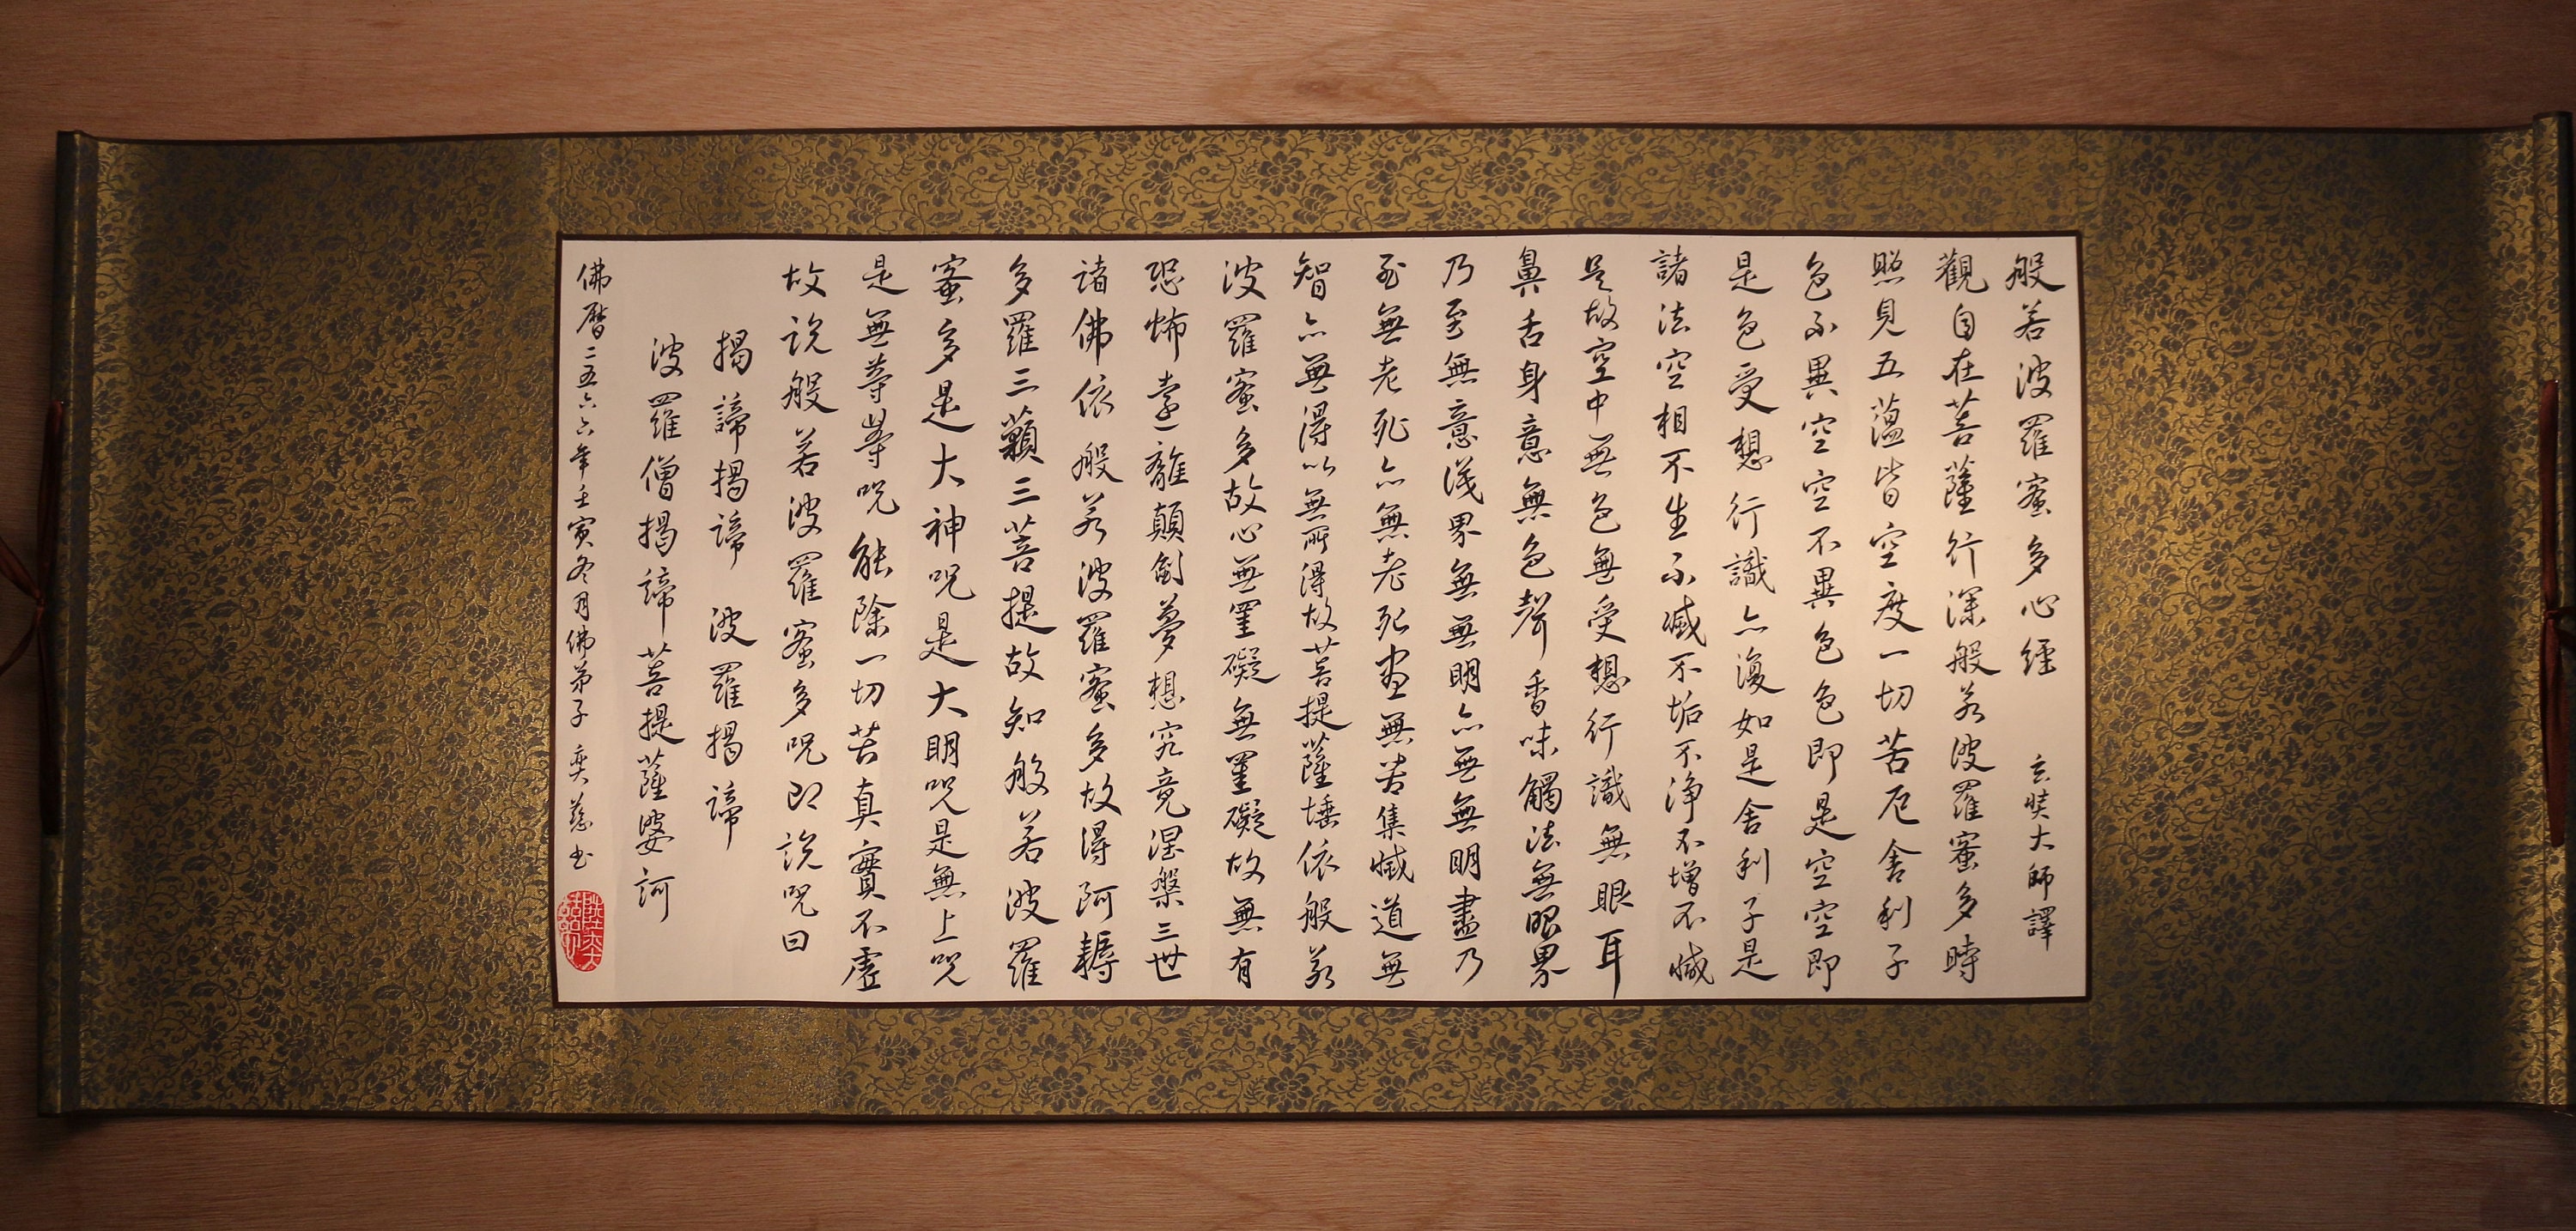 般若波羅蜜多心經 玄奘大師譯
觀自在菩薩行深般若波羅蜜多時
照見五蘊皆空度一切苦厄舍利子
色不異空空不異色色即是空空即
是色受想行識亦復如是舍利子是
諸法空相不生不滅不垢不淨不增不減
是故空中無色無受想行識無眼耳
鼻舌身意無色聲香味觸法無眼界
乃至無意識界無無明亦無無明盡乃
至無老死亦無老死盡無苦集滅道無
智亦無得以無所得故菩提薩埵依般若
波羅蜜多故心無罣礙無罣礙故無有
恐怖遠離顛倒夢想究竟涅槃三世
諸佛依般若波羅蜜多故得阿耨
多羅三藐三菩提故知般若波羅
蜜多是大神咒是大明咒是無上咒
是無等等咒能除一切苦真實不虛
故說般若波羅蜜多咒即說咒曰
揭諦揭諦 波羅揭諦
波羅僧揭諦 菩提薩婆訶
佛曆二五六六年壬寅冬月佛弟子奕慈书